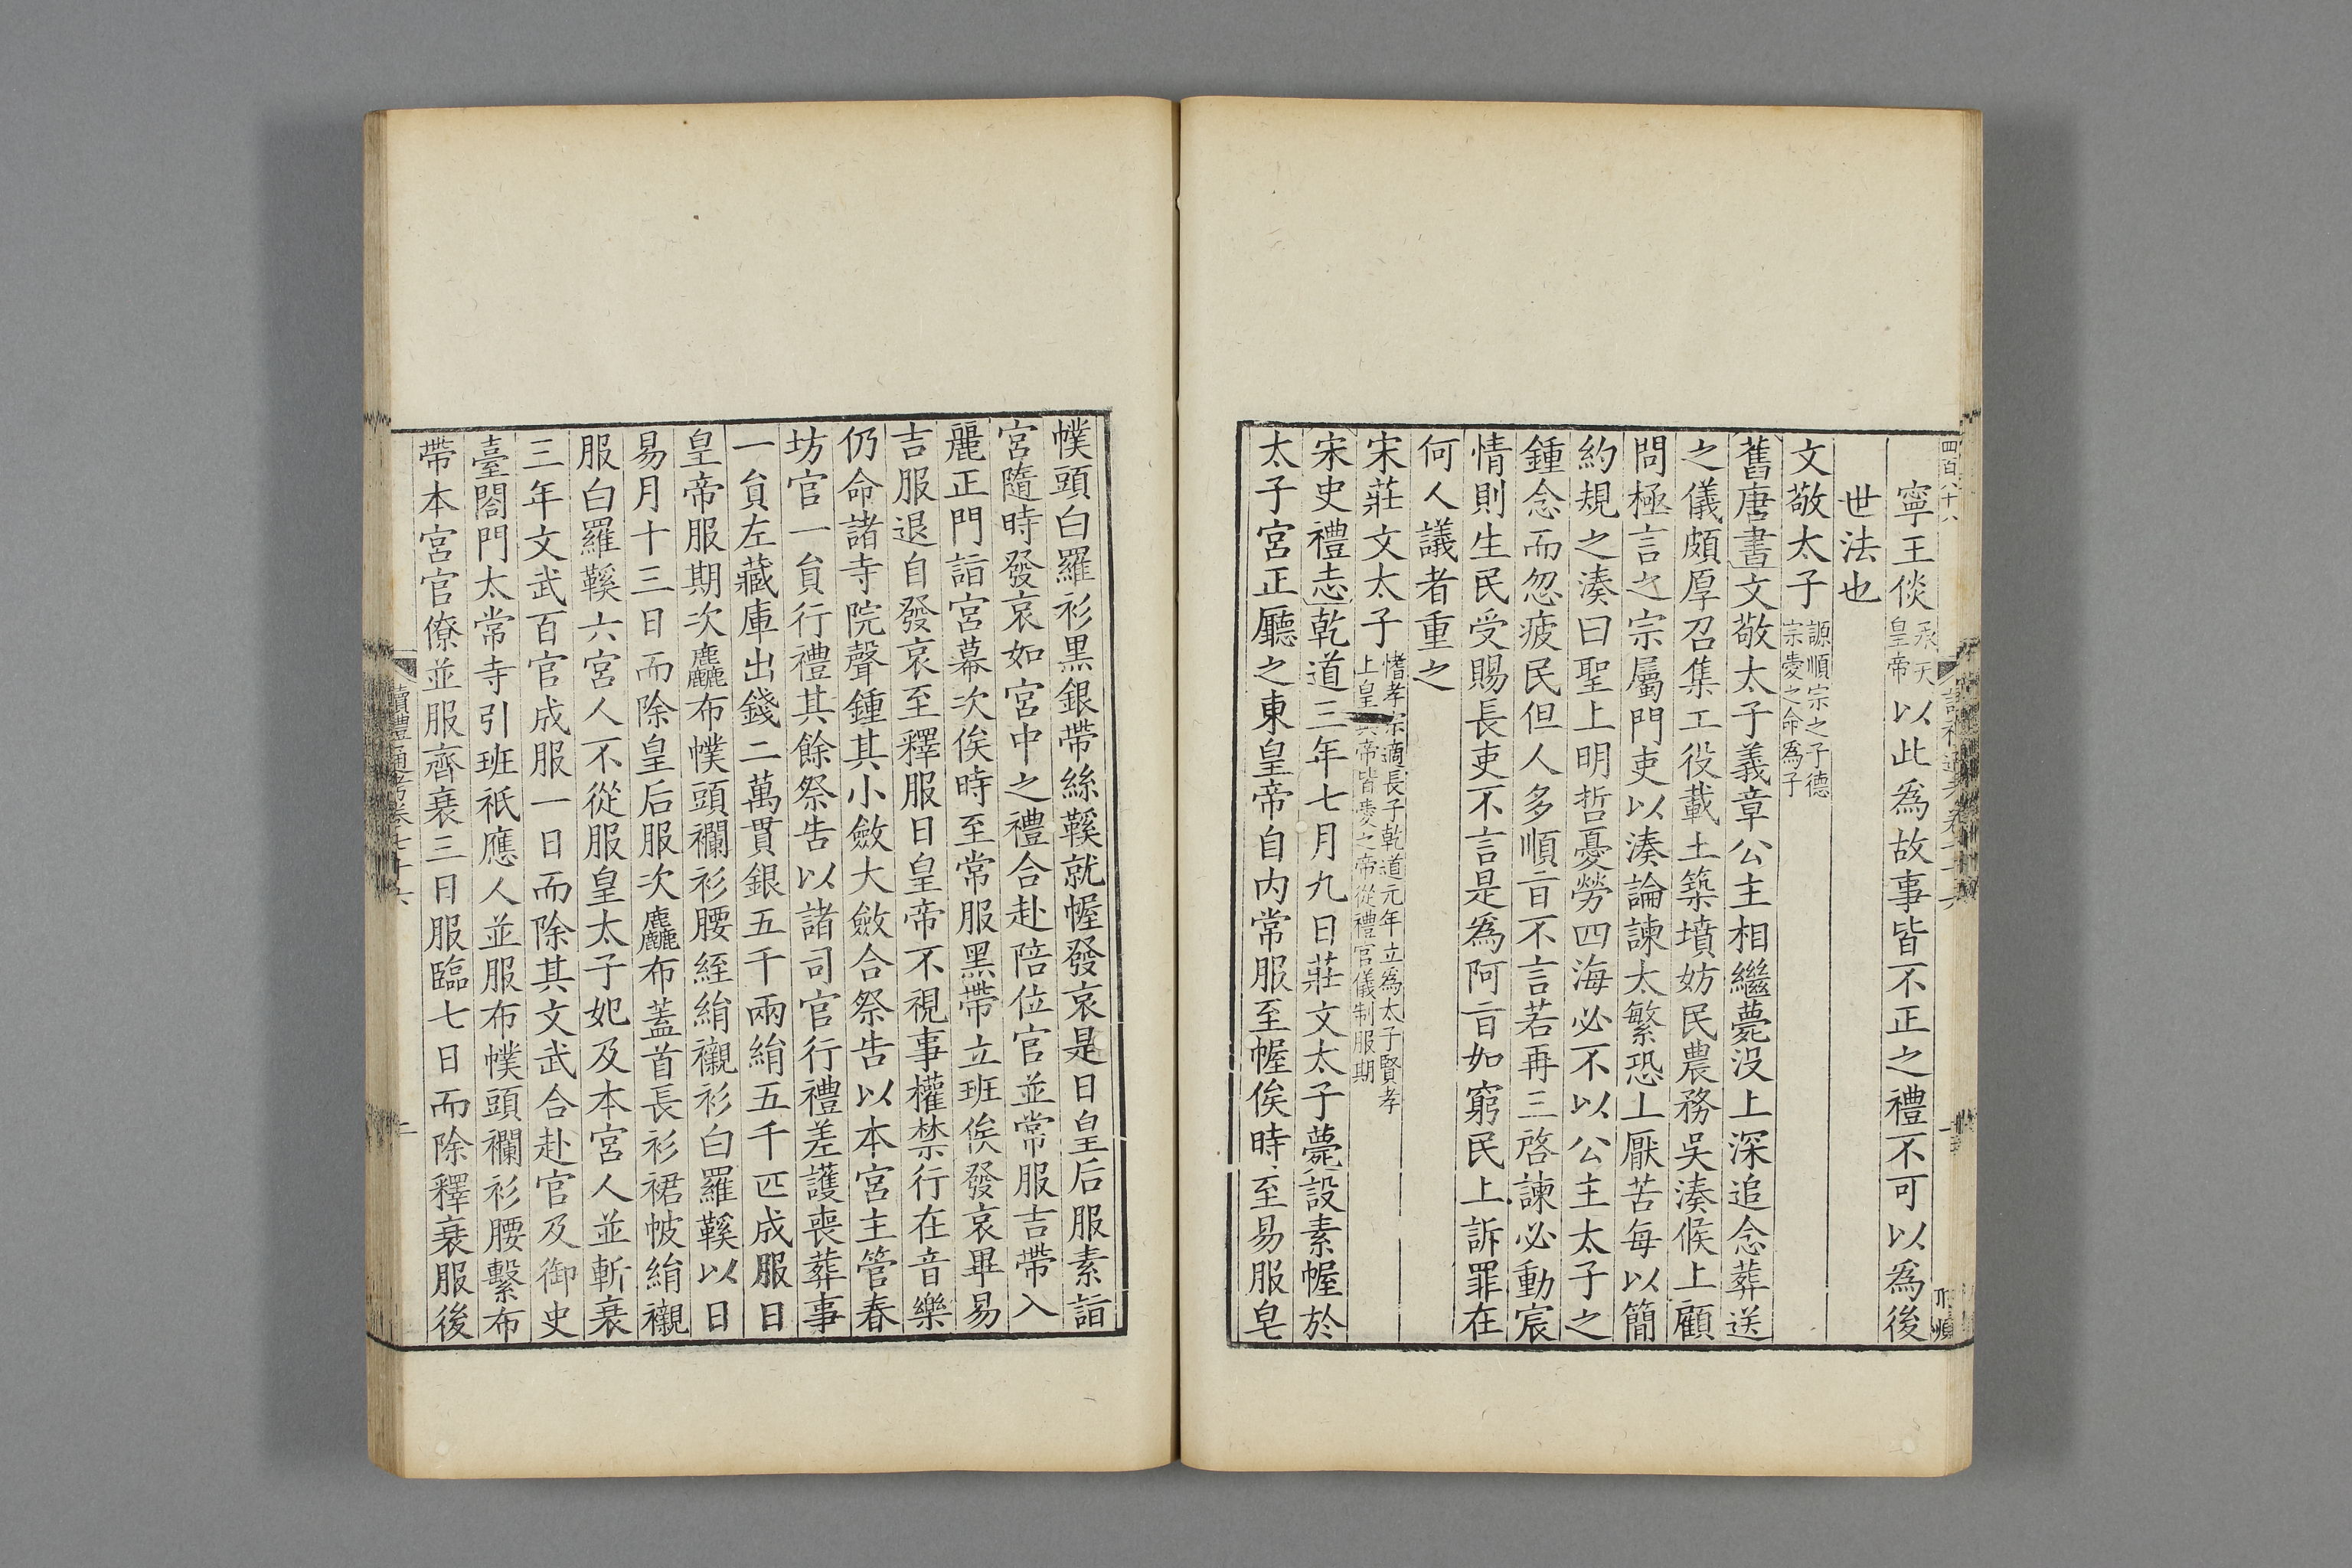 四百八十八
寧王倓承天皇帝以此為故事皆不正之禮不可以為後
世法也
文敬太子謜順宗之子德宗愛之命為子
舊唐書文敬太子義章公主相繼薨沒上深追念葬送
之儀頗厚召集工役載土築墳妨民農務吳湊候上顧
問極言之宗屬門吏以湊論諫太繁恐上厭苦每以簡
約規之湊曰聖上明哲憂勞四海必不以公主太子之
鍾念而忽疲民但人多順旨不言若再三啓諫必動宸
情則生民受賜長吏不言是為阿旨如窮民上訴罪在
何人議者重之
宋莊文太子愭孝宗適長子乾道元年立為太子賢孝上皇與帝皆愛之帝從禮官儀制服期
宋史禮志乾道三年七月九日莊文太子薨設素幄於
太子宮正廳之東皇帝自内常服至幄俟時至易服皂
幞頭白羅衫黑銀帶絲鞵就幄發哀是日皇后服素詣
宮隨時發哀如宮中之禮合赴陪位官並常服吉帶入
麗正門詣宮幕次俟時至常服黑帶立班俟發哀畢易
吉服退自發哀至釋服日皇帝不視事權禁行在音樂
仍命諸寺院聲鍾其小斂大斂合祭告以本宮主管春
坊官一貟行禮其餘祭告以諸司官行禮差護喪葬事
一貟左藏庫出錢二萬貫銀五千兩絹五千匹成服日
皇帝服期次麤布幞頭襴衫腰絰絹襯衫白羅鞵以日
易月十三日而除皇后服次麤布蓋首長衫裙帔絹襯
服白羅鞵六宮人不從服皇太子妃及本宮人並斬衰
三年文武百官成服一日而除其文武合赴官及御史
臺閤門太常寺引班祗應人並服布幞頭襴衫腰繫布
帶本宮官僚並服齊衰三日服臨七日而除釋衰服後
讀禮通考卷七十六
二